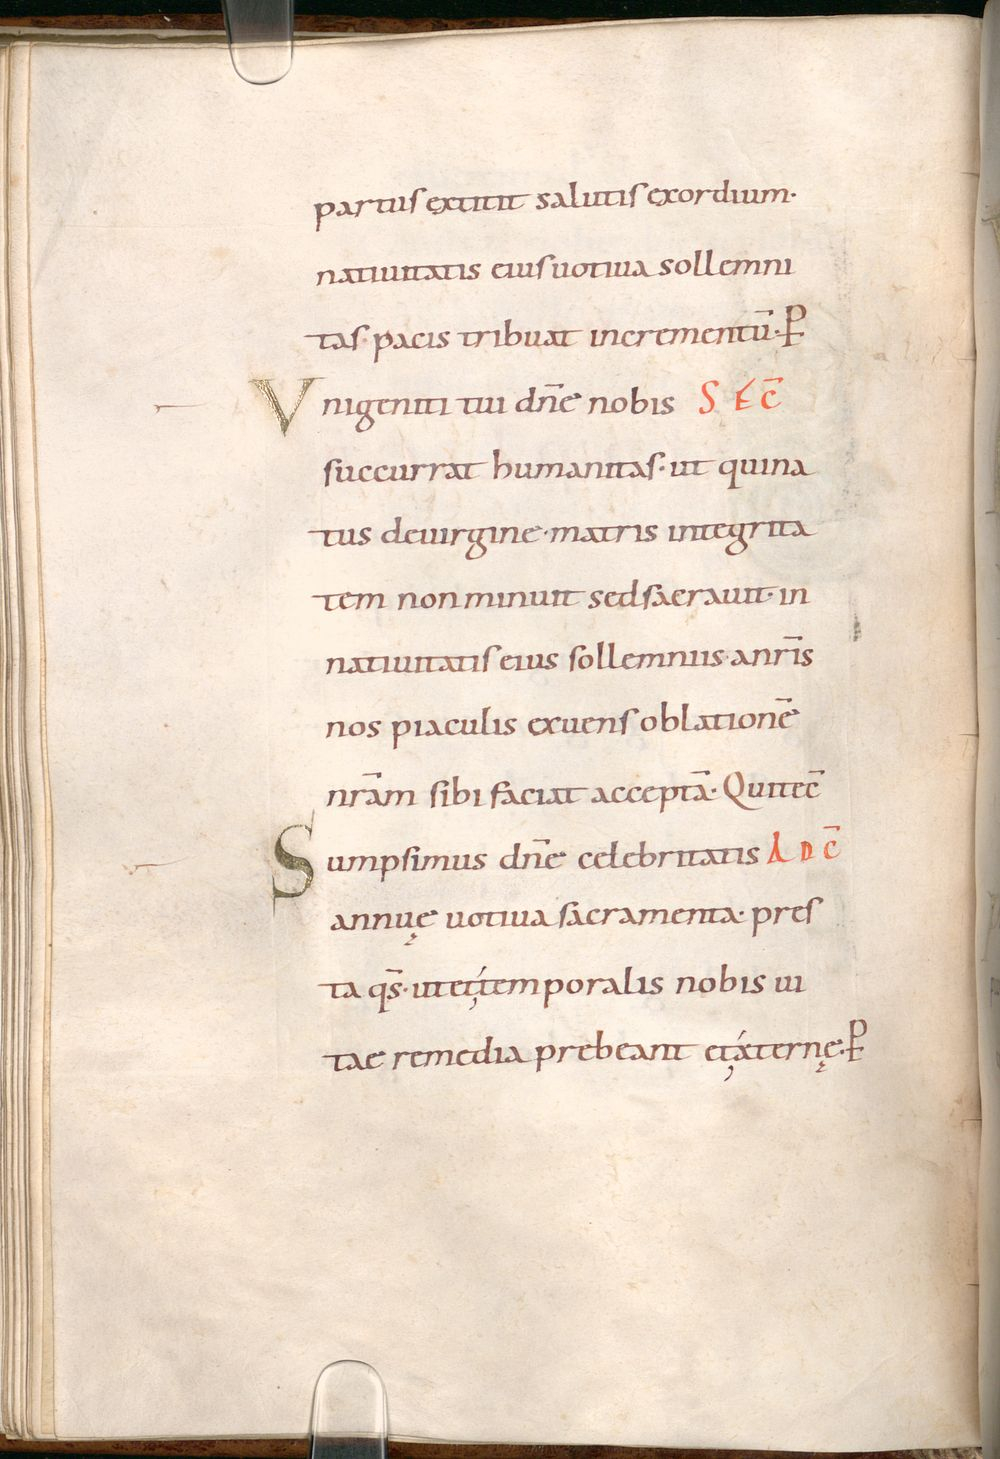 partus extitit salutis exordium·
natiuitatis eius uotiua sollemni
tas· pacis tribuat incrementū· P̄
Vnigeniti tui dn̄e nobis SEC̄
succurrat humanitas· ut qui na
tus deuirgine· matris integrita
tem non minuit sed sacrauit· in
natiuitatis eius sollemniis· anr̄is
nos piaculis exuens oblationē
nr̄am sibi faciat acceptā· Qui tec̄
Sumpsimus dn̄e celebritatis ADC̄
annuę uotiua sacramenta· pres
ta qs̄· ut et temporalis nobis ui
tae remedia prebeant et aeternę· P